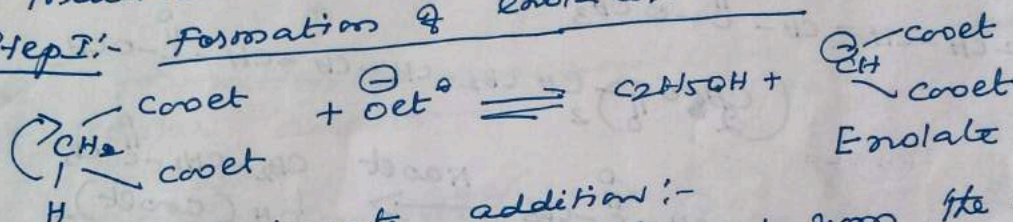 Step I:- Formation of
COOEt
CH2 COOEt
H
+ ⊖OEt ⇌ C2H5OH +
⊖CH COOEt
COOEt
Enolate
addition :-
the